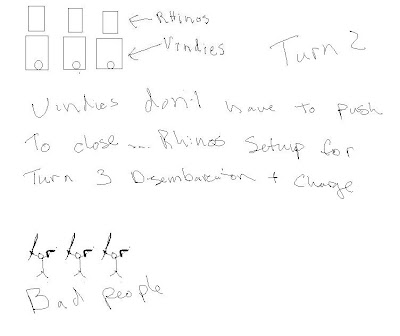 Rhinos
Vindies
Turn 2
Vindies don't have to push
To close ... Rhinos Setup for
Turn 3 Disembarcation + Charge
Bad people